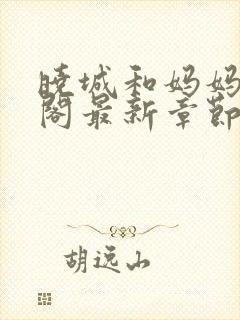 晓城和妈妈
阁最新章节
胡远山